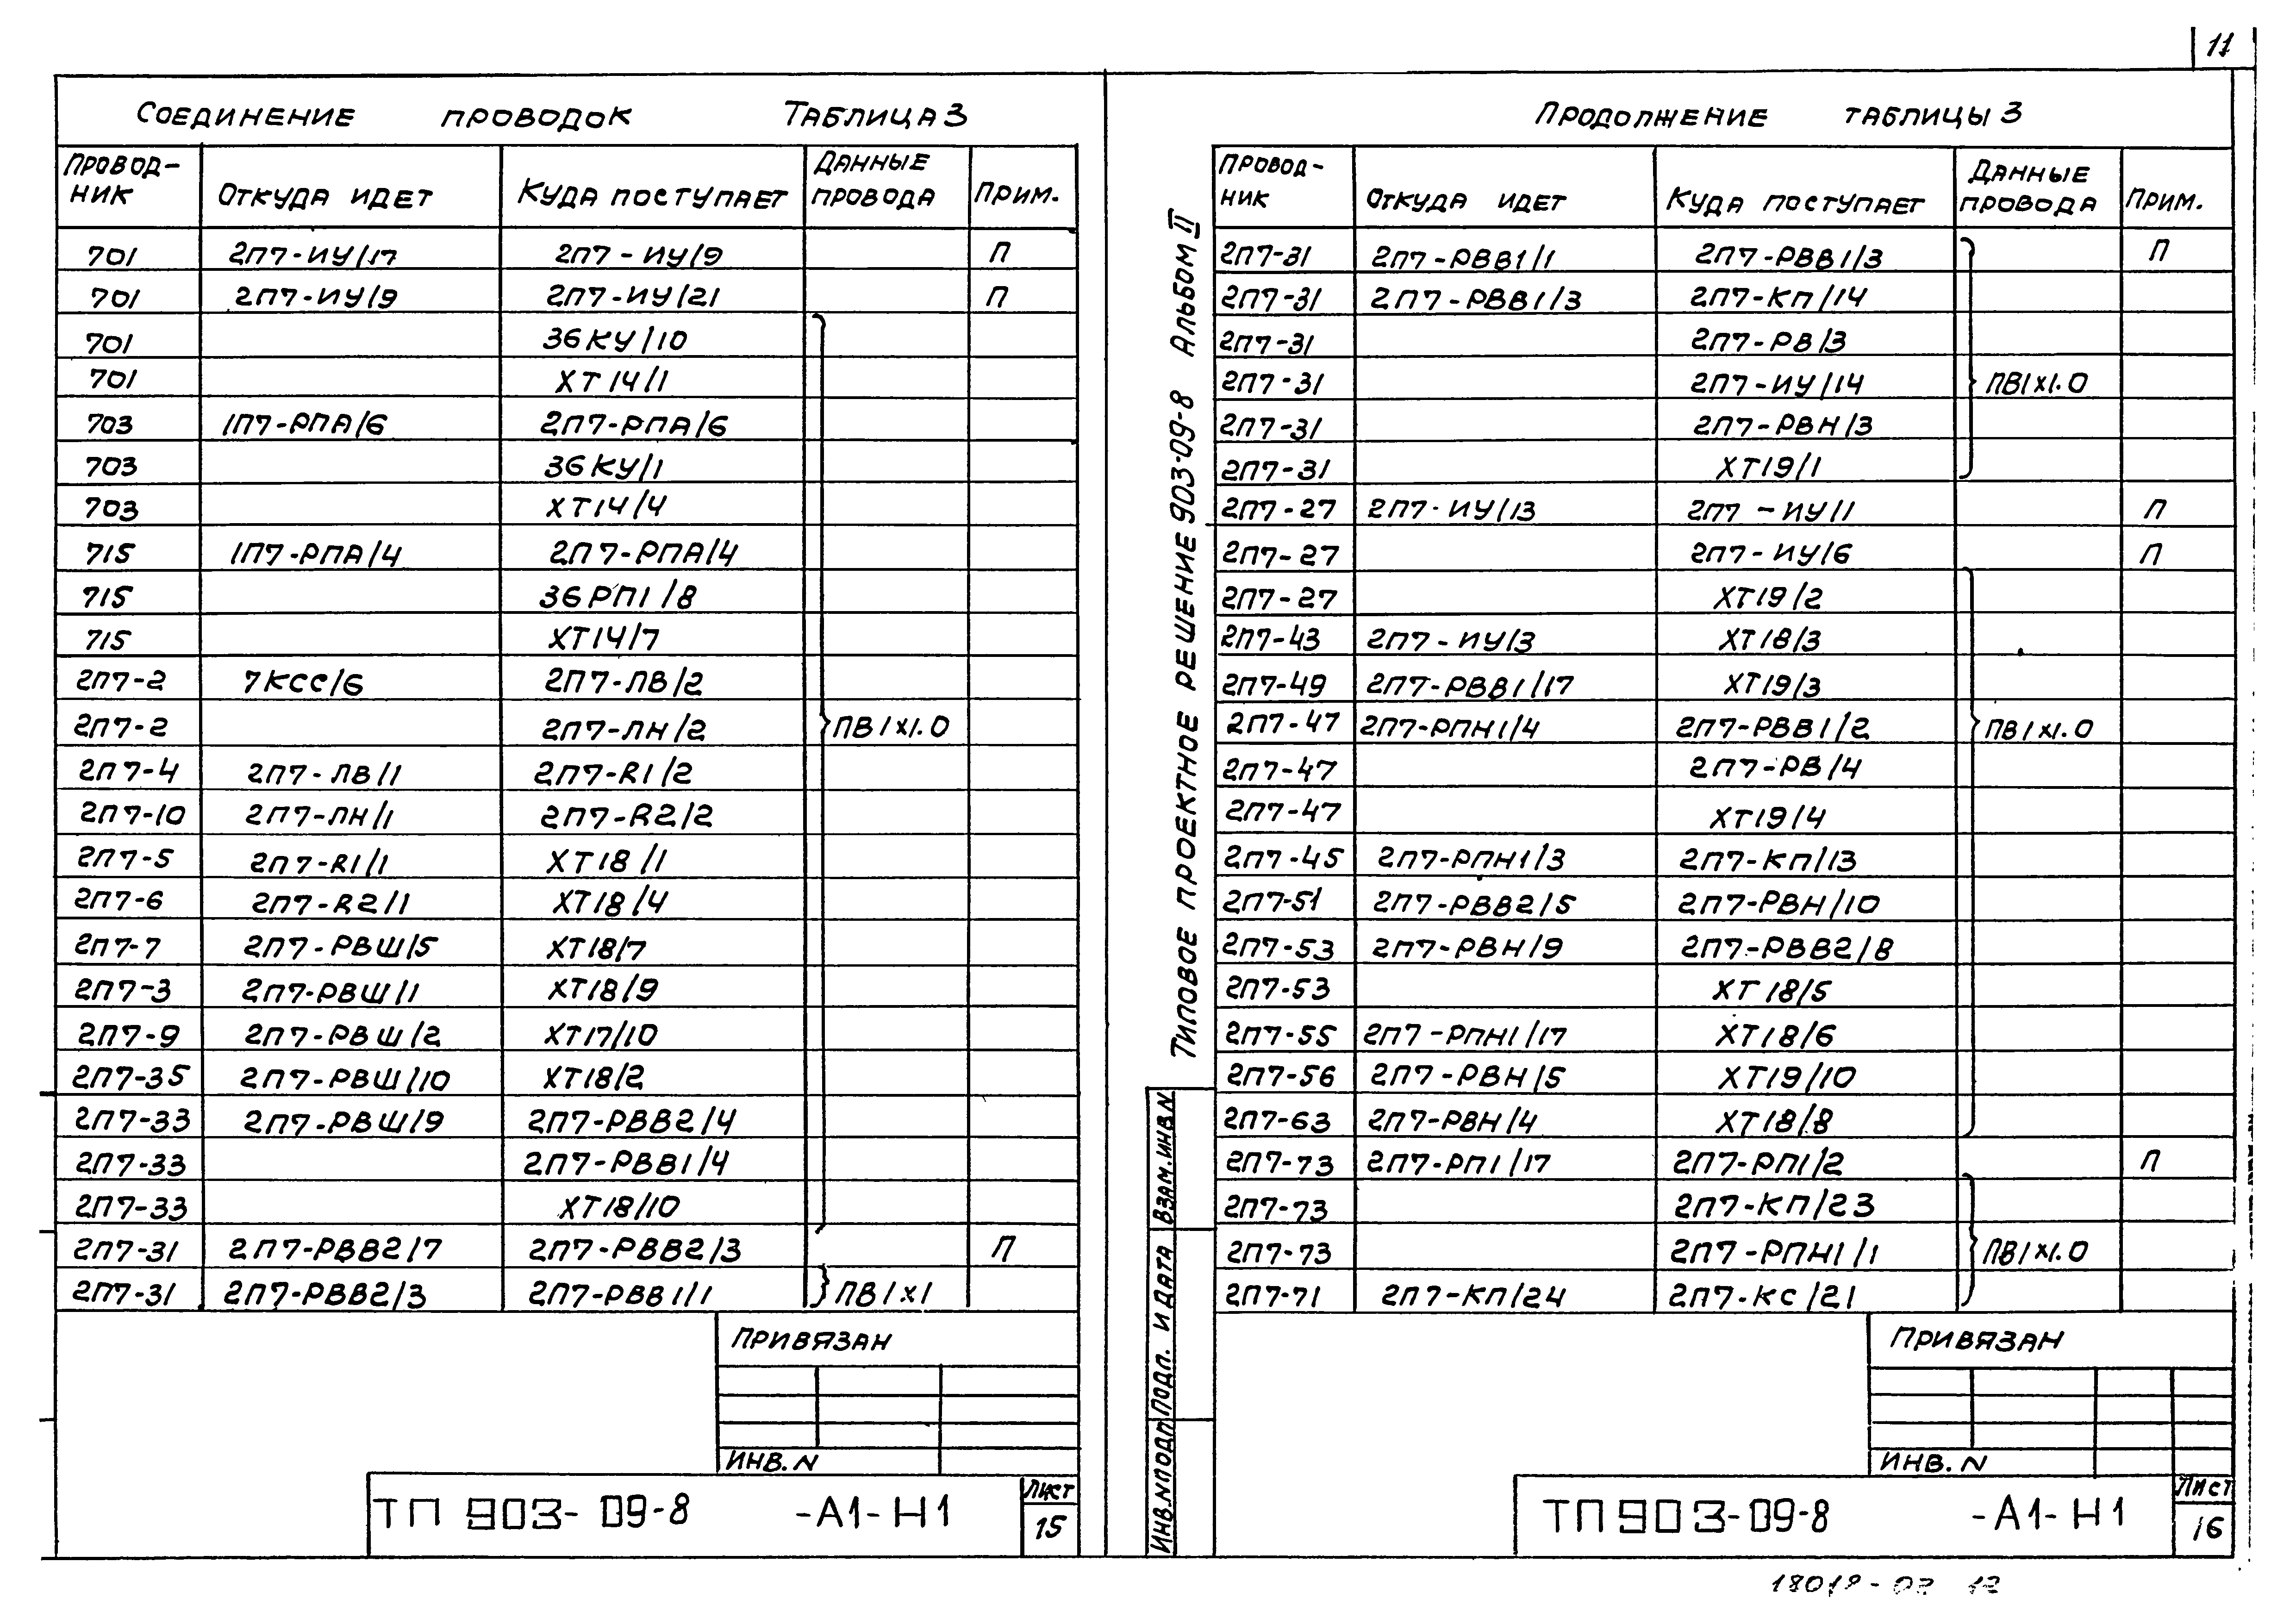 11
Соединение проводок Таблица 3
Провод-ник Откуда идет Куда поступает Данные провода Прим.
701 2П7-ИУ/17 2П7-ИУ/9 П
701 2П7-ИУ/9 2П7-ИУ/21 П
701 36КУ/10
701 ХТ14/1
703 1П7-РПА/6 2П7-РПА/6
703 36КУ/1
703 ХТ14/4
715 1П7-РПА/4 2П7-РПА/4
715 36РП1/8
715 ХТ14/7
2П7-2 7КСС/6 2П7-ЛВ/2
2П7-2 2П7-ЛН/2 ПВ1х1.0
2П7-4 2П7-ЛВ/1 2П7-R1/2
2П7-10 2П7-ЛН/1 2П7-R2/2
2П7-5 2П7-R1/1 ХТ18/1
2П7-6 2П7-R2/1 ХТ18/4
2П7-7 2П7-РВШ/5 ХТ18/7
2П7-3 2П7-РВШ/1 ХТ18/9
2П7-9 2П7-РВШ/2 ХТ17/10
2П7-35 2П7-РВШ/10 ХТ18/2
2П7-33 2П7-РВШ/9 2П7-РВВ2/4
2П7-33 2П7-РВВ1/4
2П7-33 ХТ18/10
2П7-31 2П7-РВВ2/7 2П7-РВВ2/3 П
2П7-31 2П7-РВВ2/3 2П7-РВВ1/1 ПВ1х1
Привязан
Инв. N
ТП 903-09-8 -А1-Н1
Лист
15
Типовое проектное решение 903-09-8 Альбом II
Взам. инв. N
Подп. и дата
Инв. N подл
Продолжение таблицы 3
Провод-ник Откуда идет Куда поступает Данные провода Прим.
2П7-31 2П7-РВВ1/1 2П7-РВВ1/3 П
2П7-31 2П7-РВВ1/3 2П7-КП/14
2П7-31 2П7-РВ/3
2П7-31 2П7-ИУ/14 ПВ1х1.0
2П7-31 2П7-РВН/3
2П7-31 ХТ19/1
2П7-27 2П7-ИУ/13 2П7-ИУ/1 П
2П7-27 2П7-ИУ/6 П
2П7-27 ХТ19/2
2П7-43 2П7-ИУ/3 ХТ18/3
2П7-49 2П7-РВВ1/17 ХТ19/3
2П7-47 2П7-РПН1/4 2П7-РВВ1/2 ПВ1х1.0
2П7-47 2П7-РВ/4
2П7-47 ХТ19/4
2П7-45 2П7-РПН1/3 2П7-КП/13
2П7-51 2П7-РВВ2/5 2П7-РВН/10
2П7-53 2П7-РВН/9 2П7-РВВ2/8
2П7-53 ХТ18/5
2П7-55 2П7-РПН1/17 ХТ18/6
2П7-56 2П7-РВН/5 ХТ19/10
2П7-63 2П7-РВН/4 ХТ18/8
2П7-73 2П7-РП1/17 2П7-РП1/2 П
2П7-73 2П7-КП/23
2П7-73 2П7-РПН1/1 ПВ1х1.0
2П7-71 2П7-КП/24 2П7-КС/21
Привязан
Инв. N
ТП 903-09-8 -А1-Н1
Лист
16
18018-02 12